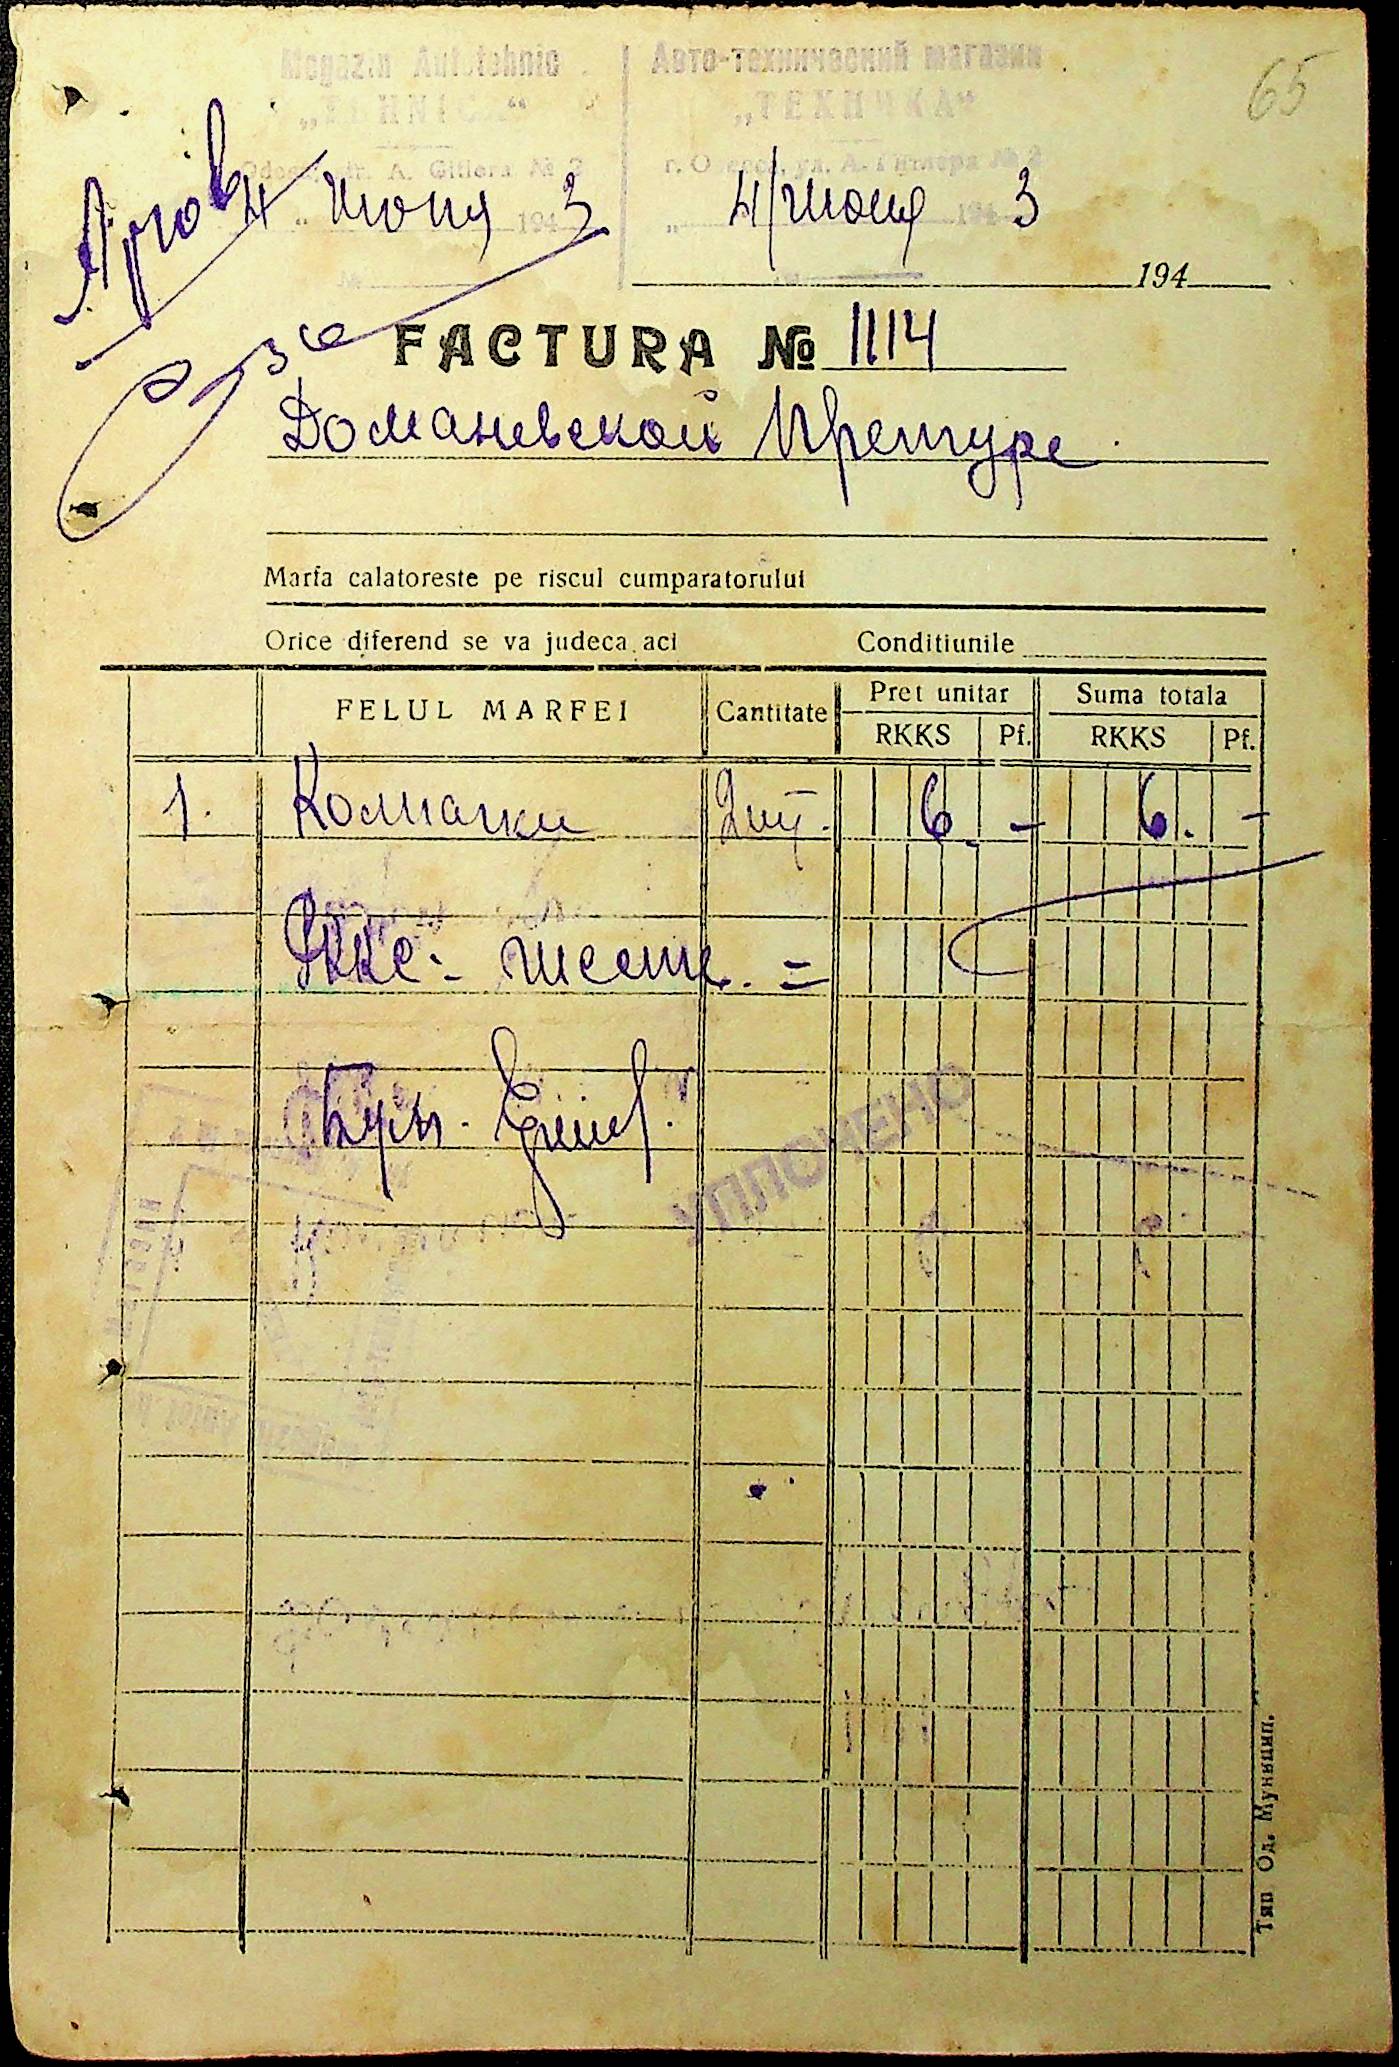 65
Magazin Autotehnic
„TEHNICA“
Odesa, str. A. Gitlera № 2
„4 июня 1943
№
Авто-технический магазин
„ТЕХНИКА“
г. Одесса, ул. А. Гитлера № 2
„4/июня 1943
194
FACTURA № 1114
Доманевской Претуре
Marfa calatoreste pe riscul cumparatorului
Orice diferend se va judeca aci Conditiunile
FELUL MARFEI Cantitate Pret unitar Suma totala
RKKS Pf. RKKS Pf.
1. Колпачки 2шт. 6. - 6. -
Ркке:- шесть. =
УПЛОЧЕНО
Тип Од. Муницип.